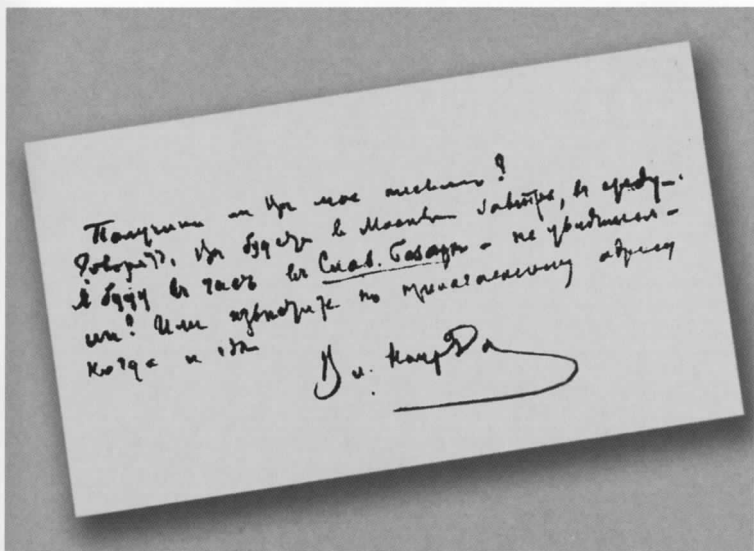 Получили ли Вы мое письмо?
Говорят, Вы будете в Москве завтра, в среду.
Я буду в час в Слав. Базаре – не увидимся –
ли? Или известите по прилагаемому адресу
когда и где
Вл.